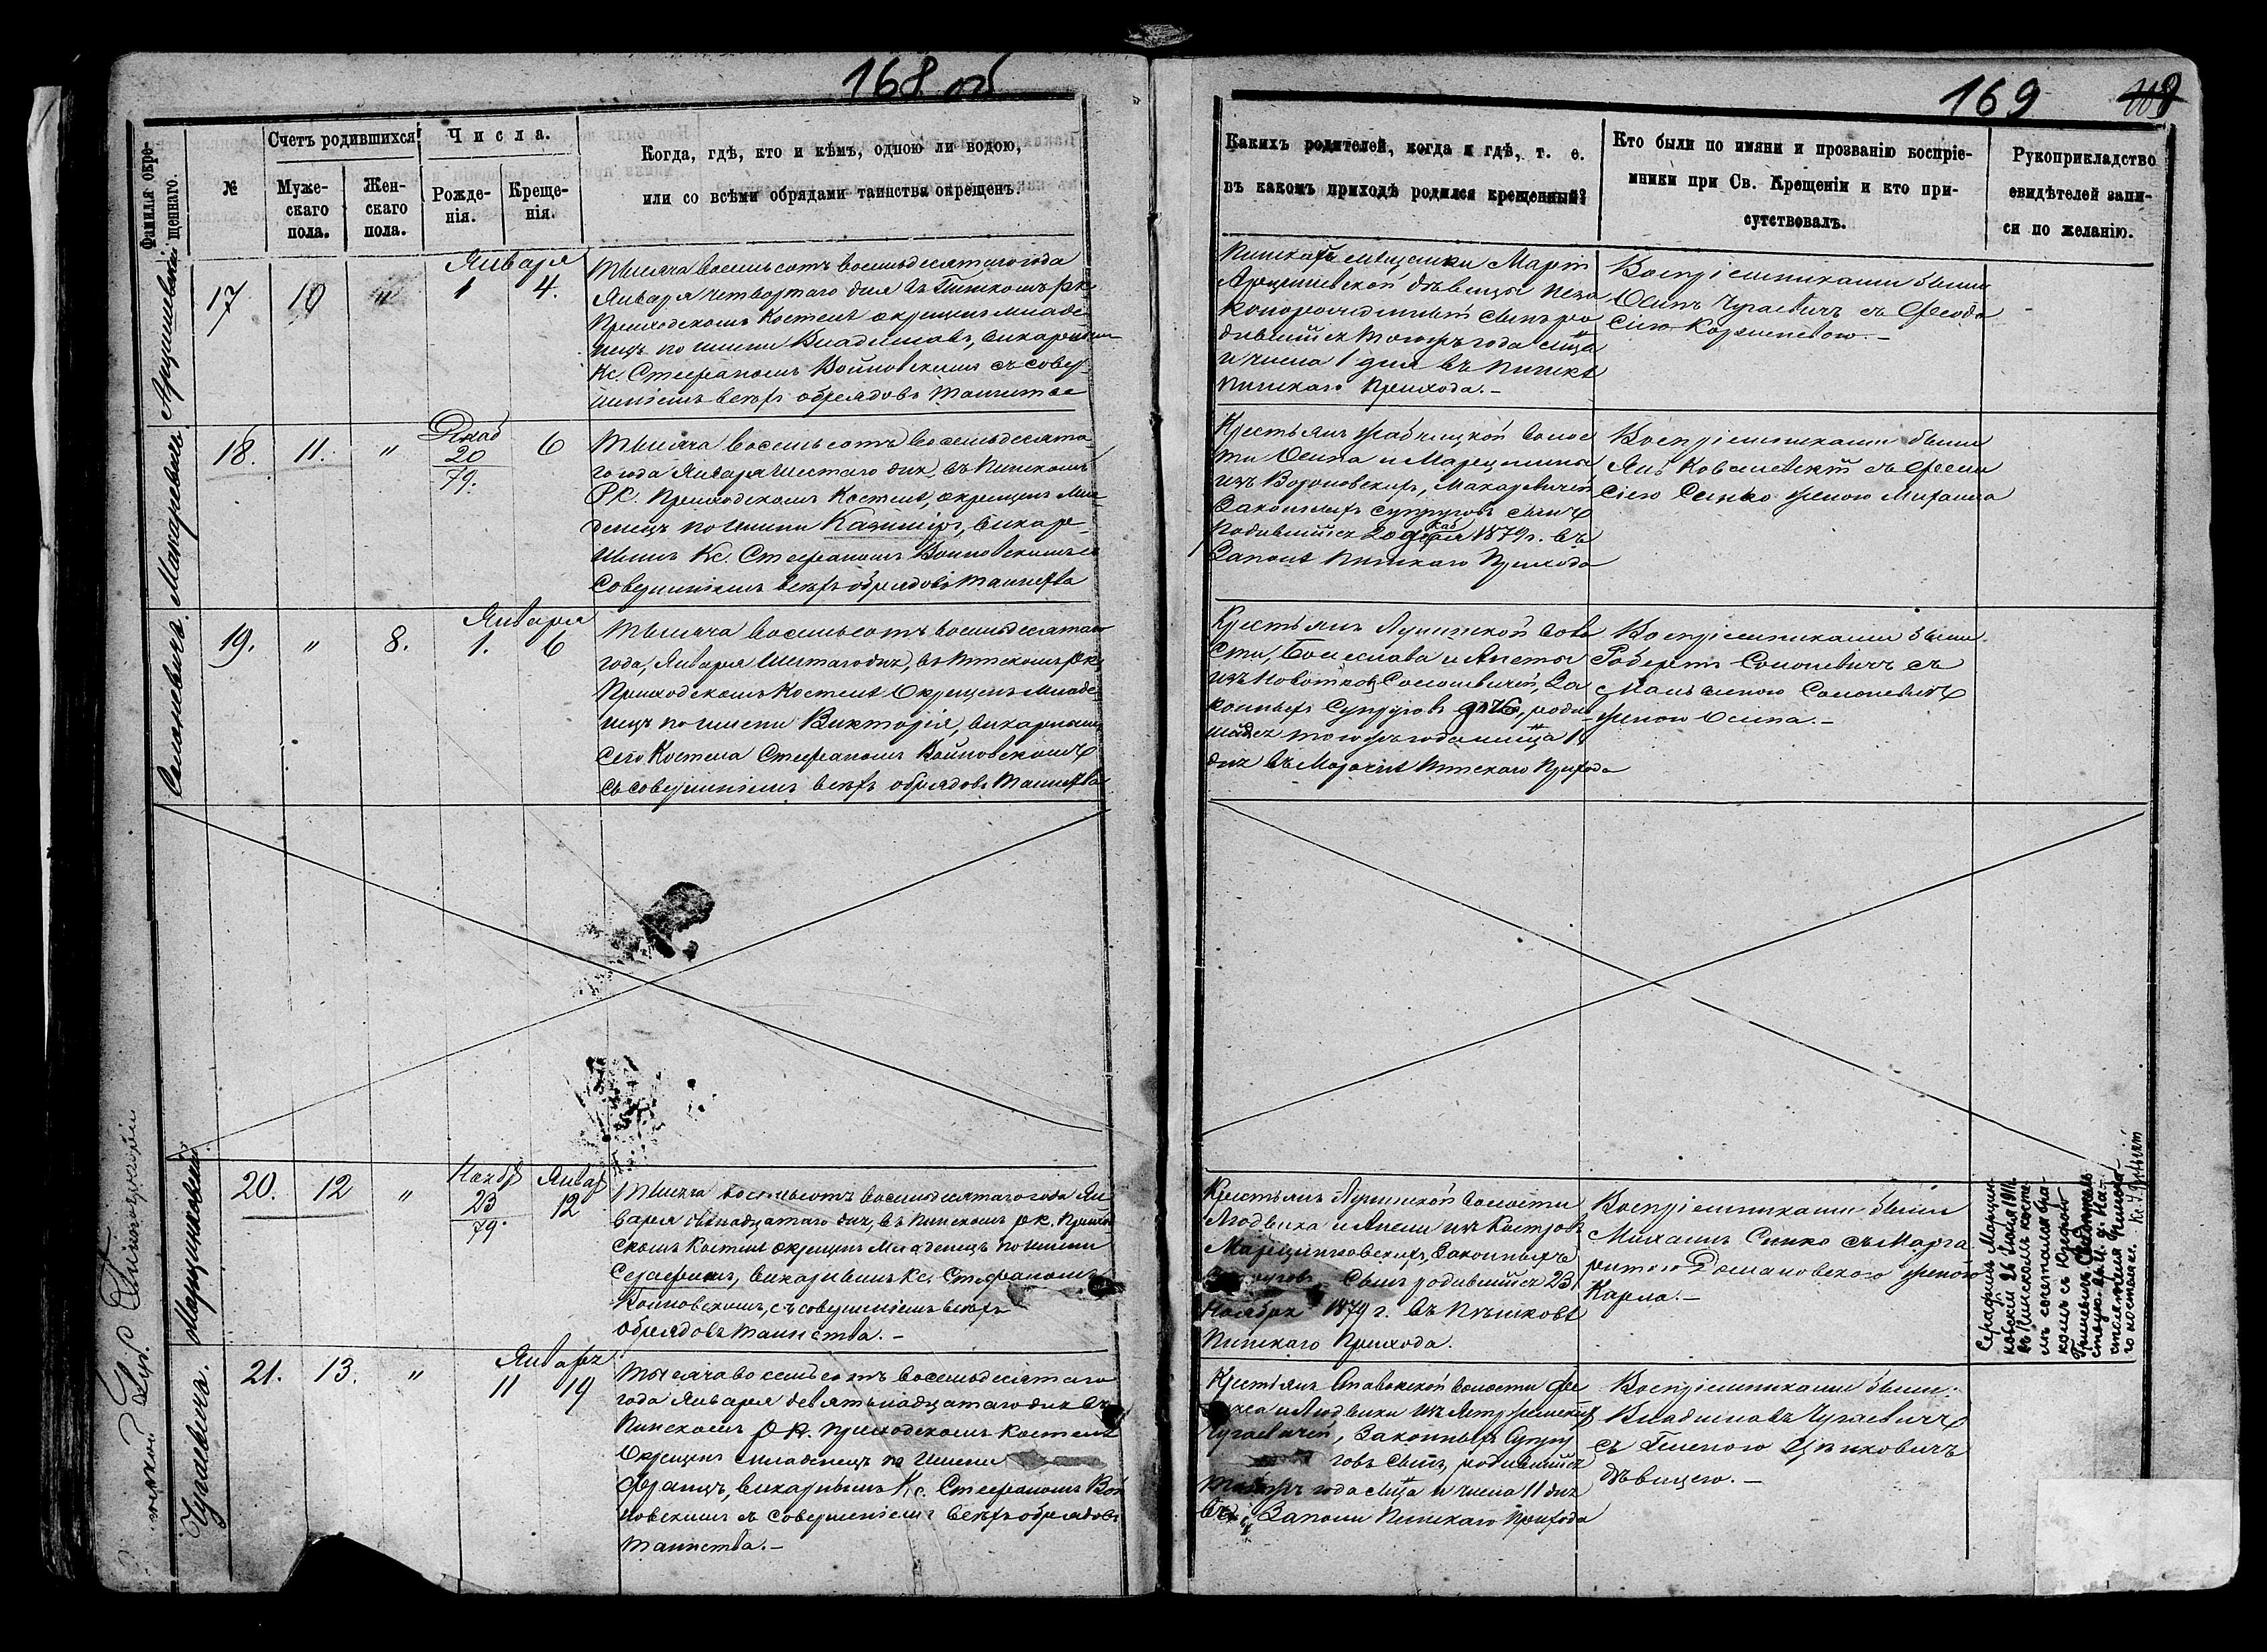 168 об
Фамилія окре-
щеннаго.
№
Счетъ родившихся
Муже-
скаго
пола.
Жен-
скаго
пола.
Числа.
Рожде-
нія.
Креще-
нія.
Когда, гдѣ, кто и кѣмъ, одною ли водою,
или со всѣми обрядами таинства окрещенъ.
17
10
"
Января
1
4.
Тысяча восемьсотъ восемьдесятаго года
Января четвертаго дня въ Пинскомъ рк.
Приходскомъ Костелѣ окрещенъ младе-
нецъ по имени Владиславъ, викарнымъ
Кс. Стефаномъ Войновскимъ съ совер-
шеніемъ всѣхъ обрядовъ Таинства
Макаревичъ.
18.
11.
"
Декаб
20
79.
6
Тысяча восемьсотъ восемьдесята-
го года Января шестаго дня, въ Пинскомъ
РК. Приходскомъ Костелѣ, окрещенъ Мла-
денецъ по имени Казимиръ, викар-
нымъ Кс. Стефаномъ Войновскимъ съ
совершеніемъ всѣхъ обрядовъ Таинства
Солоневичъ.
19.
"
8.
Января
1.
6
Тысяча восемьсотъ восемьдесятаго
года, Января Шестаго дня, въ Пинскомъ рк.
Приходскомъ Костелѣ Окрещенъ Младе-
нецъ по имени Викторія, викарнымъ
сего Костела Стефаномъ Войновскимъ
съ совершеніемъ всѣхъ обрядовъ Таинства
Марцинковскій
20.
12
"
Ноябр
23
79.
Январ
12
Тысяча восемьсотъ восемьдесятаго года Ян-
варя двѣнадцатаго дня, въ Пинскомъ рк. Приход-
скомъ Костелѣ окрещенъ Младенецъ по имени
Серафимъ, викарнымъ Кс. Стефаномъ
Войновскимъ, съ совершеніемъ всѣхъ
обрядовъ таинства. –
Чугаевичъ.
21.
13.
"
Января
11
19
Тысяча восемьсотъ восемьдесятаго
года Января девятьнадцатаго дня въ
Пинскомъ РК. приходскомъ костелѣ
Окрещенъ младенецъ по Имени
Францъ, викарнымъ Кс. Стефаномъ Вой
новскимъ съ совершеніемъ всѣхъ обрядовъ
таинства. –
169
Какихъ родителей, когда и гдѣ, т. е.
въ какомъ приходѣ родился крещенный?
Кто были по имяни и прозванію воспріе-
мники при Св. Крещеніи и кто при-
сутствовалъ.
Рукоприкладство
свидѣтелей запи-
си по желанію.
дѣвицы неза
сынъ ро
дившійся тогожъ года м-ца
и числа 1 дня въ Пинскѣ
Пинскаго Прихода. –
Воспріемниками были
Осипъ Чугаевичъ съ Феодо
сіею
Крестьянъ волос
ти Осипа и
изъ Вороновскихъ, Макаревичей
Законныхъ супруговъ сынъ
Родившійся 20 1879 г. въ
Пинскаго Прихода
Воспріемниками были
Янъ Ковалевскій съ
сіею Сенько женою Михаила
Крестьянъ Лунинской воло
сти, Болеслава и Анеты
изъ Солоневичей, За
конныхъ Супруговъ дочь, роди
шаяся тогожъ года м-ца 1
дня въ Пинскаго Прихода
Воспріемниками были.
Робертъ Солоневичъ съ
Солоневичъ
женою Осипа. –
Крестьянъ Лунинской волости
Людвика и изъ
Марцинковскихъ, Законныхъ
Сынъ родившійся 23
Ноября 1879 г. въ
Пинскаго Прихода.
Воспріемниками были
Михаилъ Сенько съ Марга
ритою Домановскою женою
Карла. –
Серафимъ Марцин-
ковскій 26 1911 г.
въ Пинскомъ косте-
лѣ сочетался бра-
комъ съ
Крестьянъ волости
и Людвики изъ
Чугаевичей, Законныхъ Супру
говъ сынъ, родившійся
года м-ца и числа 11 дня
въ Пинскаго Прихода
Воспріемниками были:
Владиславъ Чугаевичъ
съ Еленою
дѣвицею. –